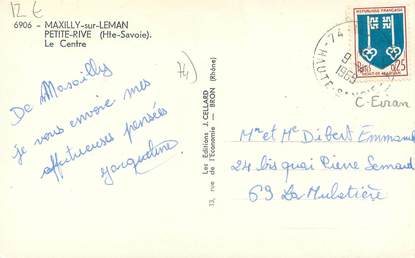 12 €
6906 - MAXILLY-sur-LEMAN
PETITE-RIVE (Hte-Savoie).
Le Centre
74)
De Maxilly
je vous envoie mes
affectueuses pensées
Jacqueline
Les Editions J. CELLARD
13, rue de l'Economie — BRON (Rhône)
REPUBLIQUE FRANÇAISE
0,25
MONT-DE-MARSAN
74
9
1969
HAUTE-SAVOIE
C-Evian
Mr et Me Dibert Emmanuel
24 bis quai Pierre Semard
69 La Mulatière